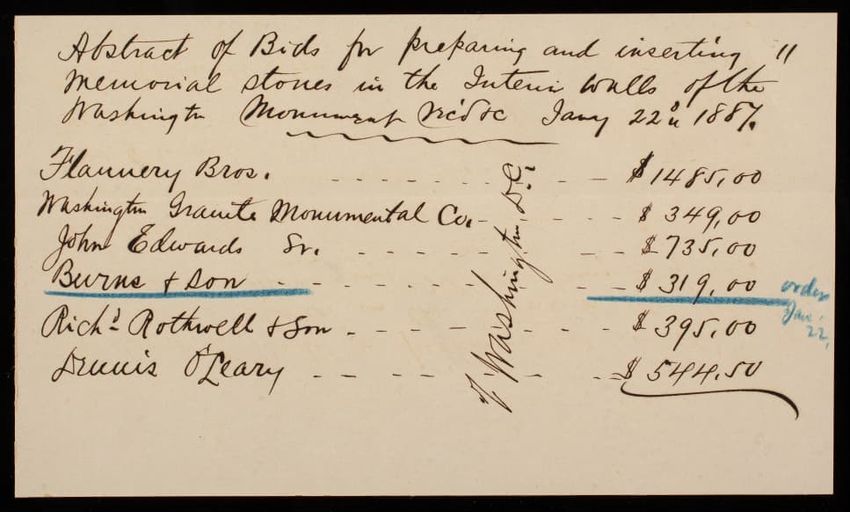 Abstract of Bids for preparing and inserting "
Memorial stones in the Interior Walls of the
Washington Monument rec'd &c Jany 22d 1887.
Flannery Bros. $1485,00
Washington Granite Monumental Co. $ 349,00
John Edwards Sr. $ 735,00
Burns & Son $ 319,00
Richd Rothwell & Son $ 395,00
Dennis O'Leary $ 544,50
Washington, D.C.
order
Jan.
22,